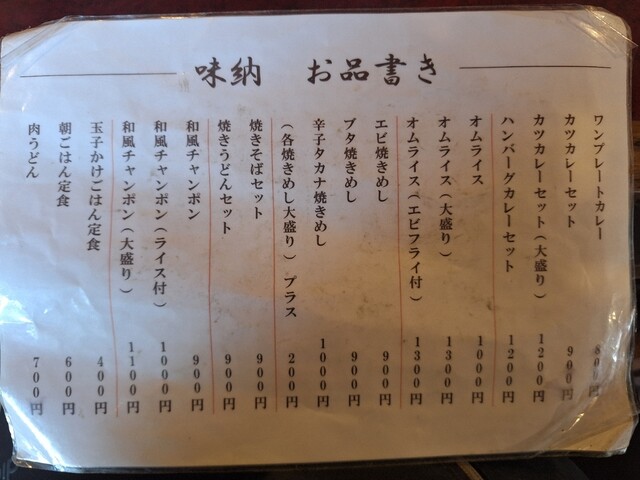 味納 お品書き
ワンプレートカレー 800円
カツカレーセット 900円
カツカレーセット（大盛り） 1200円
ハンバーグカレーセット 1200円
オムライス 1000円
オムライス（大盛り） 1300円
オムライス（エビフライ付） 1300円
エビ焼きめし 900円
ブタ焼きめし 900円
辛子タカナ焼きめし 1000円
（各焼きめし大盛り） プラス 200円
焼きそばセット 900円
焼きうどんセット 900円
和風チャンポン 900円
和風チャンポン（ライス付） 1000円
和風チャンポン（大盛り） 1100円
玉子かけごはん定食 400円
朝ごはん定食 600円
肉うどん 700円